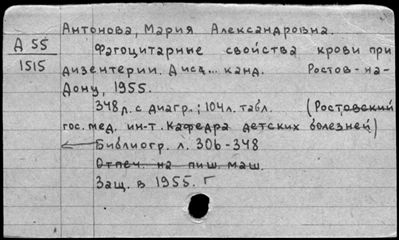 Антонова, Мария Александровна.
Д 55
1515
Фагоцитарные свойства крови при
дизентерии. Дисд... канд. Ростов-на-
Дону, 1955.
348 л. с диагр.; 104 л. табл. (Ростовский
гос. мед. ин-т. Кафедра детских болезней)
Библиогр. л. 306-348
Отпеч. на пиш. маш.
Защ. в 1955. Г